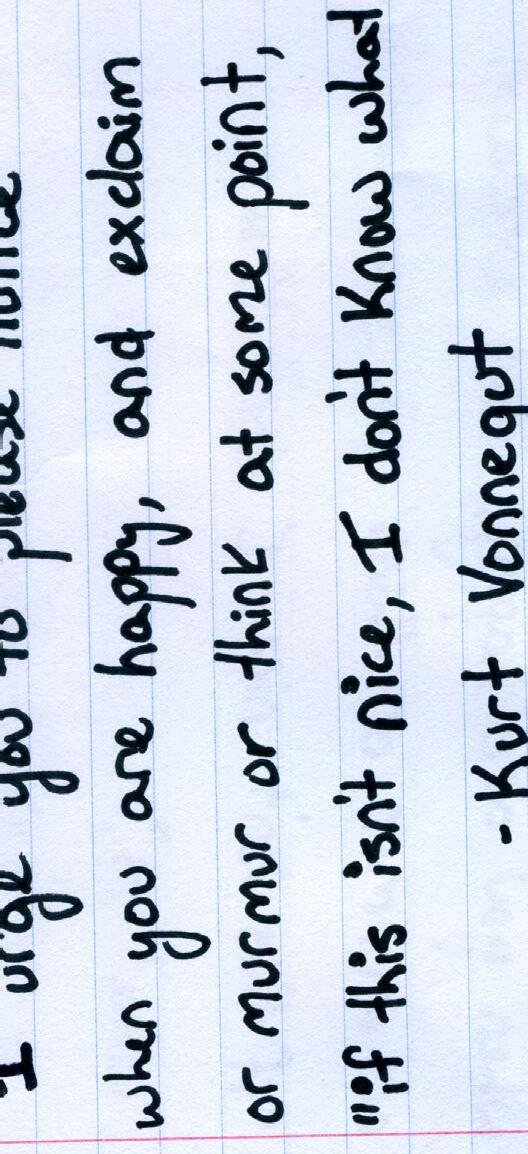 I urge you to please notice
when you are happy, and exclaim
or murmur or think at some point,
"if this isn't nice, I don't know what
- Kurt Vonnegut